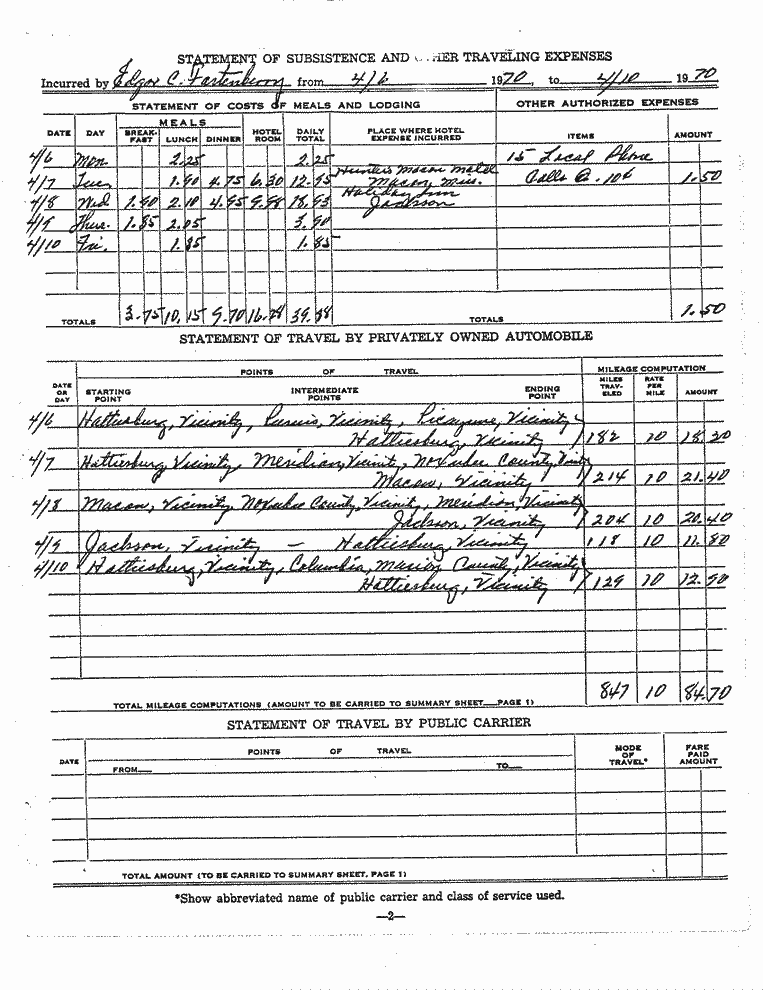 STATEMENT OF SUBSISTENCE AND OTHER TRAVELING EXPENSES
Incurred by Edgar C. Fortenberry from 4/6 1970, to 4/10 1970
STATEMENT OF COSTS OF MEALS AND LODGING OTHER AUTHORIZED EXPENSES
DATE DAY MEALS BREAK-FAST LUNCH DINNER HOTEL ROOM DAILY TOTAL PLACE WHERE HOTEL EXPENSE INCURRED ITEMS AMOUNT
4/6 Mon. 2.25 2.25 15 Local Phone
4/7 Tues 1.90 4.75 6.30 12.95 Hunter's Macon Motel Macon, Miss. Calls @ .10¢ 1.50
4/8 Wed 1.90 2.10 4.95 9.98 18.93 Holiday Inn Jackson
4/9 Thur. 1.85 2.05 3.90
4/10 Fri. 1.85 1.85
TOTALS 3.75 10.15 9.70 16.28 39.88 TOTALS 1.50
STATEMENT OF TRAVEL BY PRIVATELY OWNED AUTOMOBILE
DATE OR DAY POINTS OF TRAVEL MILEAGE COMPUTATION
STARTING POINT INTERMEDIATE POINTS ENDING POINT MILES TRAV-ELED RATE PER MILE AMOUNT
4/6 Hattiesburg, Vicinity, Purvis, Vicinity, Picayune, Vicinity
Hattiesburg, Vicinity 182 10 18.20
4/7 Hattiesburg, Vicinity, Meridian, Vicinity, Noxubee County, Vinity
Macon, Vicinity 214 10 21.40
4/8 Macon, Vicinity, Noxubee County, Vicinity, Meridian, Vicinity
Jackson, Vicinity 204 10 20.40
4/9 Jackson, Vicinity — Hattiesburg, Vicinity 118 10 11.80
4/10 Hattiesburg, Vicinity, Columbia, Marion County, Vicinity
Hattiesburg, Vicinity 129 10 12.90
TOTAL MILEAGE COMPUTATIONS (AMOUNT TO BE CARRIED TO SUMMARY SHEET PAGE 1) 847 10 84.70
STATEMENT OF TRAVEL BY PUBLIC CARRIER
DATE POINTS OF TRAVEL MODE OF TRAVEL* FARE PAID AMOUNT
FROM TO
TOTAL AMOUNT (TO BE CARRIED TO SUMMARY SHEET, PAGE 1)
*Show abbreviated name of public carrier and class of service used.
—2—